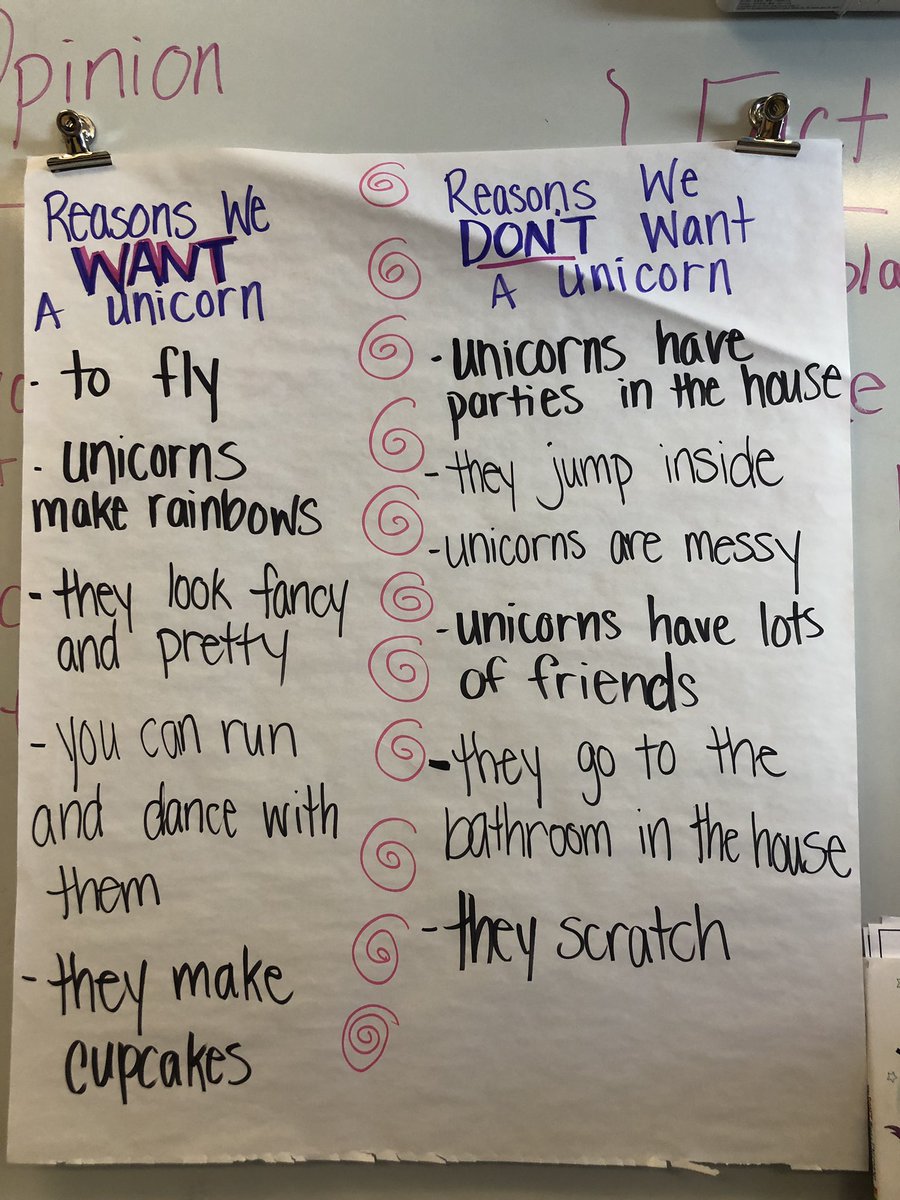 Opinion
Fact
Reasons We
WANT
A unicorn
- to fly
- unicorns
make rainbows
- they look fancy
and pretty
- you can run
and dance with
them
- they make
cupcakes
Reasons We
DON'T Want
A unicorn
- unicorns have
parties in the house
- they jump inside
- unicorns are messy
- unicorns have lots
of friends
- they go to the
bathroom in the house
- they scratch